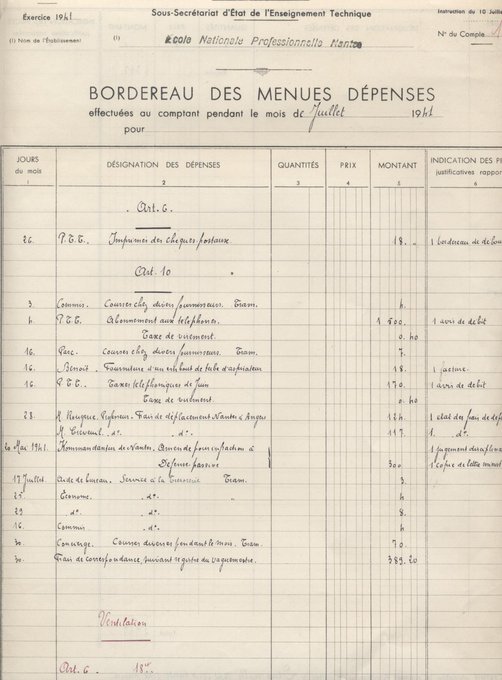 Exercice 1941
Sous-Secrétariat d'État de l'Enseignement Technique
Instruction du 10 Juille
(1) Nom de l'Établissement
(1)
École Nationale Professionnelle Nantes
N° du Compte
BORDEREAU DES MENUES DÉPENSES
effectuées au comptant pendant le mois de Juillet 1941
pour
JOURS du mois DÉSIGNATION DES DÉPENSES QUANTITÉS PRIX MONTANT INDICATION DES PI
justificatives rappor
1 2 3 4 5 6
Art. 6.
26. P.T.T. Imprimés des chèques postaux 18. " 1 bordereau de débou
Art. 10
3. Commis. Courses chez divers fournisseurs. Tram. 4.
4. P.T.T. Abonnement aux téléphones. 1 500. 1 avis de débit
Taxe de virement. 0. 40
16. Parc. Courses chez divers fournisseurs. Tram. 7.
16. Benoit. Fourniture d'un embout de tube d'aspirateur 18. 1 facture.
16. P.T.T. Taxes téléphoniques de Juin 170. 1 avis de débit
Taxe de virement. 0. 40
28. M. Professeur. Frais de déplacement Nantes à Angers 124. 1 état des frais de dép
M. d° d° 117. 1. d°
20 Mai 1941. Kommandantur de Nantes. Amende pour infraction à 1 jugement disciplina
Défense passive 300 1 copie de lettre
17 Juillet. Aide de bureau. Service à la Trésorerie Tram. 3.
25. Économe. d° " 4
29 d° d° 8.
16. Commis d° 4
30. Concierge. Courses diverses pendant le mois. Tram. 70
30. Frais de correspondance, suivant registre du vaguemestre. 389. 20
Ventilation
Art. 6 18